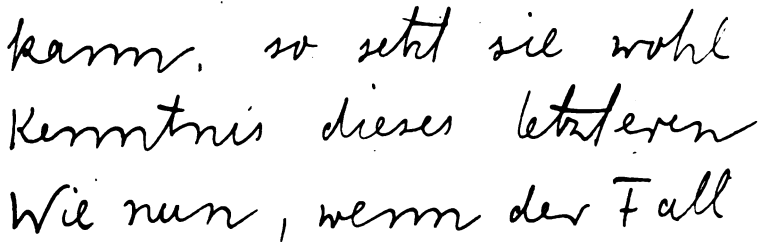 kann, so setzt sie wohl
Kenntnis dieses letzteren
Wie nun, wenn der Fall